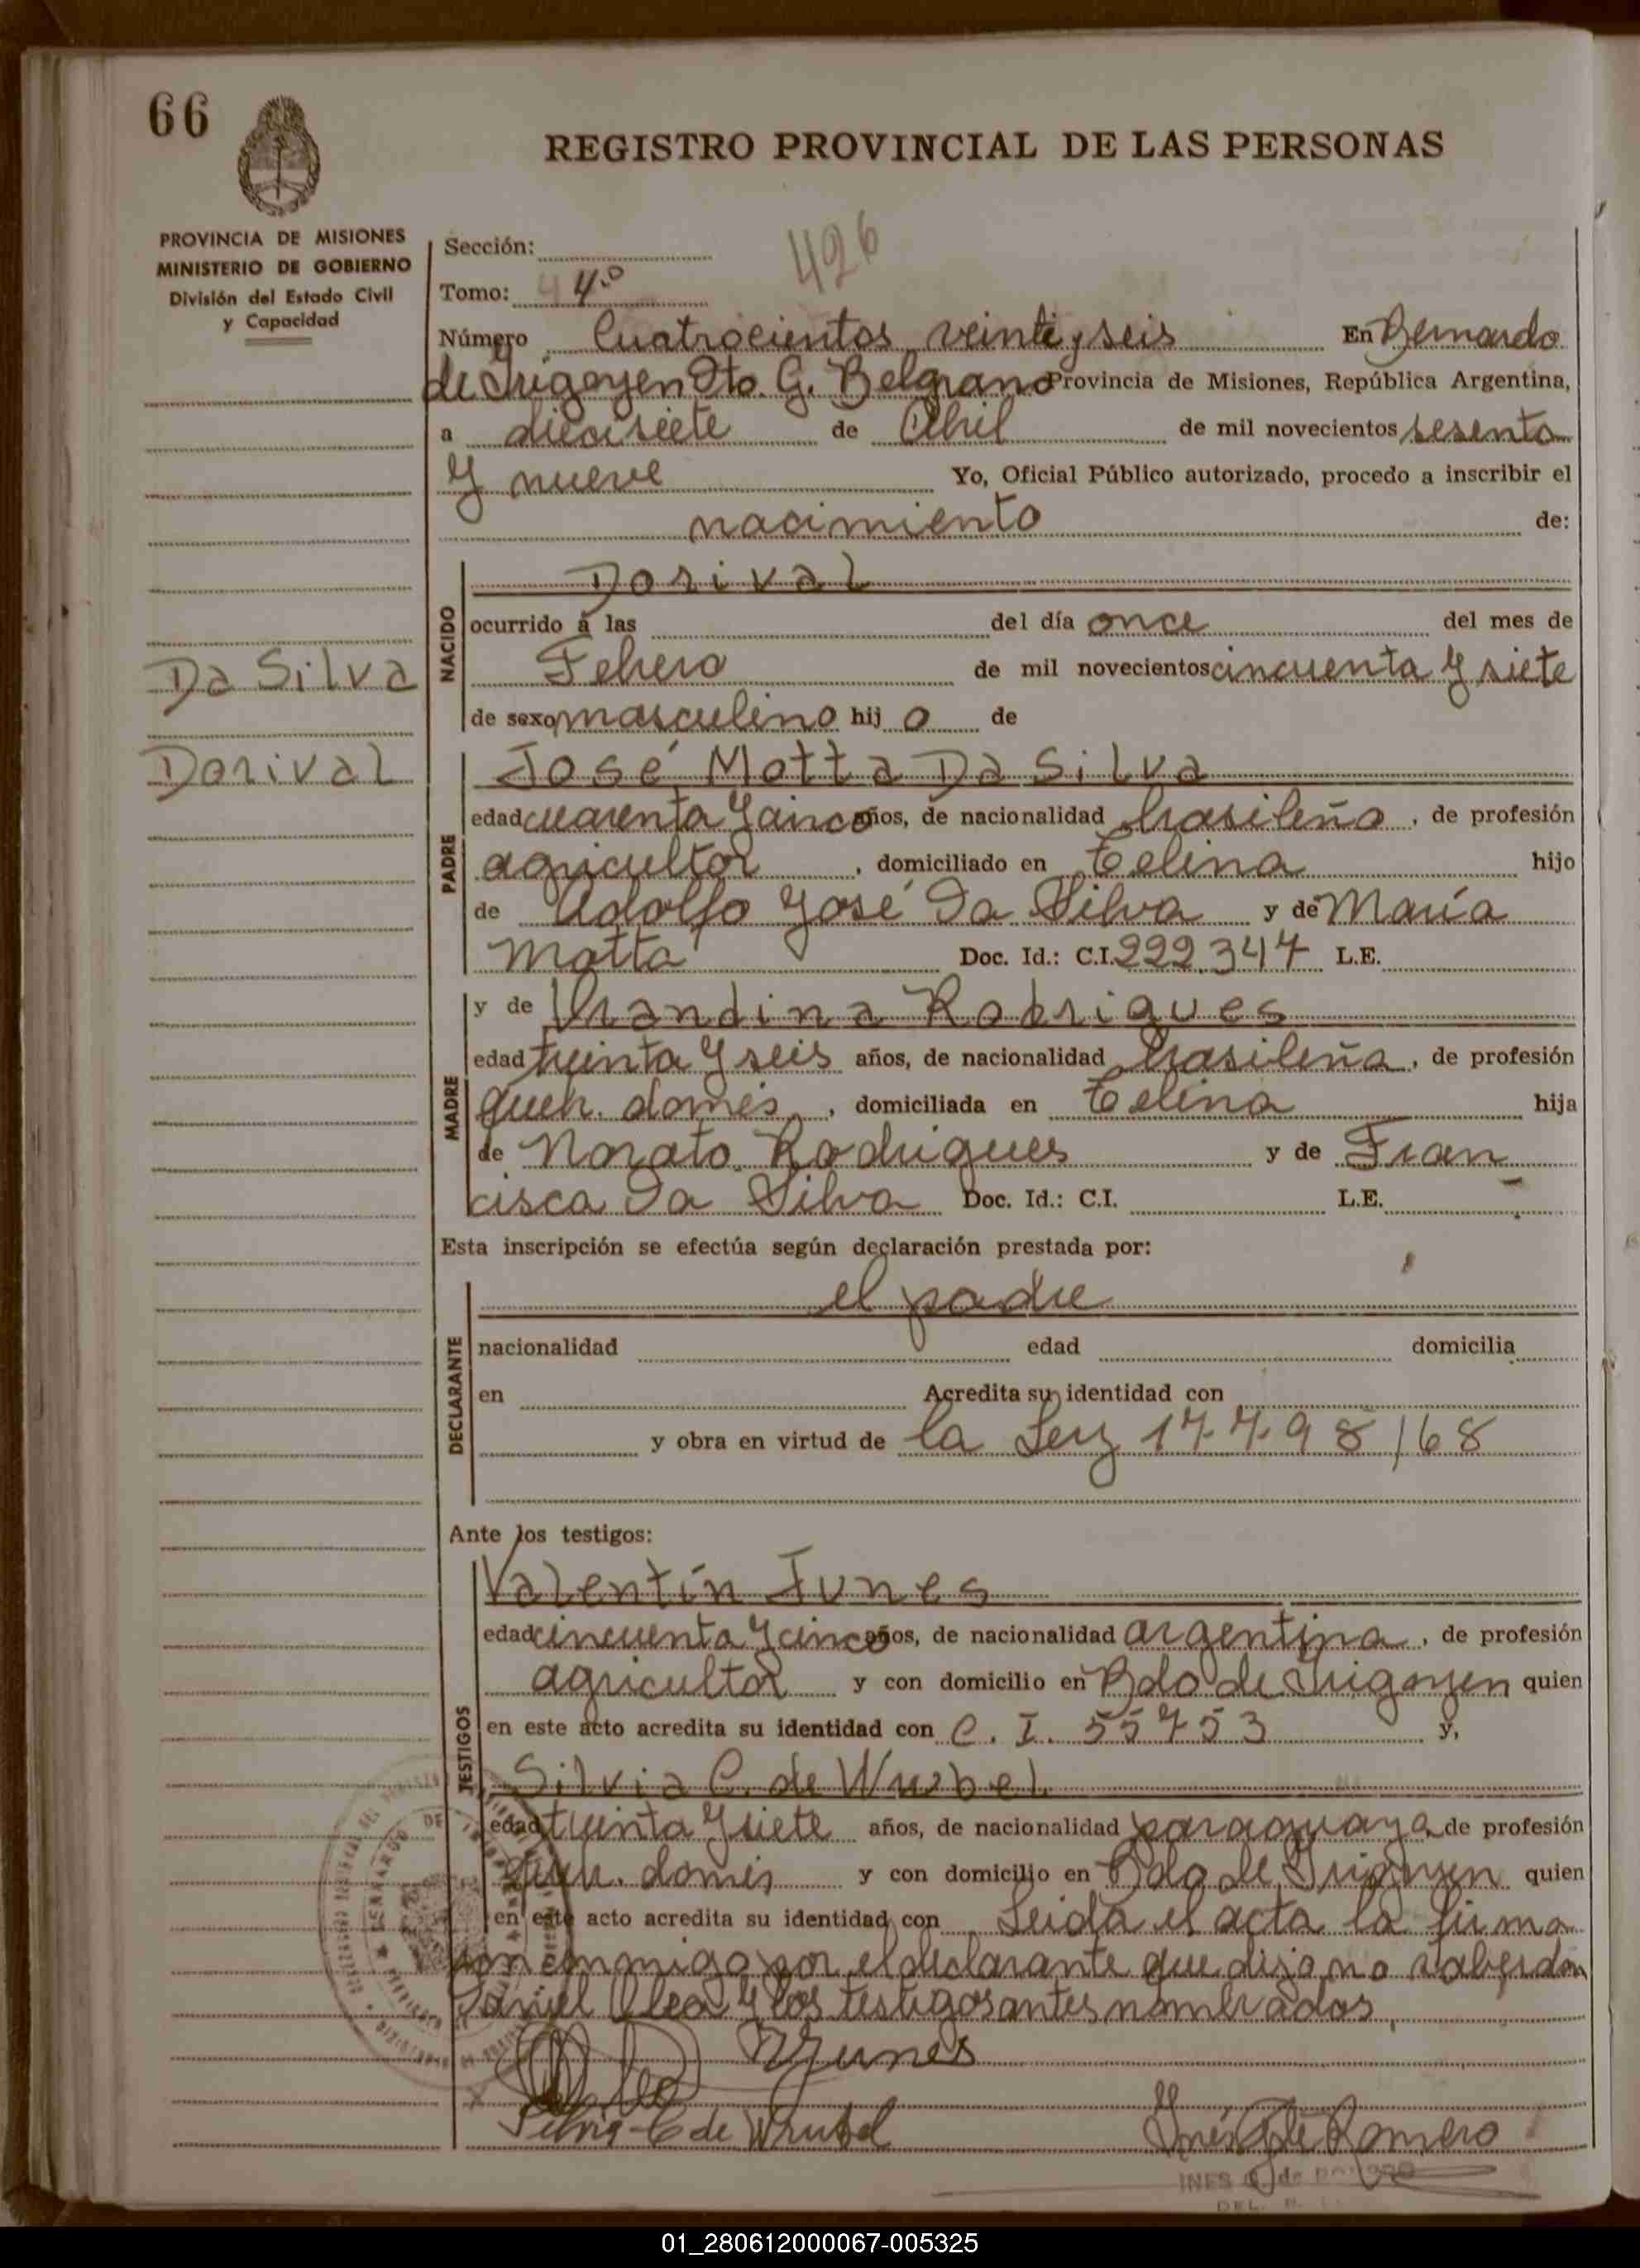 66
REGISTRO PROVINCIAL DE LAS PERSONAS
PROVINCIA DE MISIONES
MINISTERIO DE GOBIERNO
División del Estado Civil
y Capacidad
426
Sección:
Tomo: 4 4º
Número Cuatrocientos veinte y seis En Bernardo
de Irigoyen Dto. G. Belgrano Provincia de Misiones, República Argentina,
a diecisiete de Abril de mil novecientos sesenta
y nueve Yo, Oficial Público autorizado, procedo a inscribir el
nacimiento de:
NACIDO
Dorival
ocurrido a las del día once del mes de
Febrero de mil novecientos cincuenta y siete
de sexo masculino hij o de
Da Silva
Dorival
PADRE
José Motta Da Silva
edad cuarenta y cinco años, de nacionalidad brasileño, de profesión
agricultor, domiciliado en Celina hijo
de Adolfo José Da Silva y de María
Motta Doc. Id.: C.I. 222.347 L.E.
MADRE
y de Vrandina Rodrigues
edad treinta y seis años, de nacionalidad brasileña, de profesión
queh. domés, domiciliada en Celina hija
de Norato Rodrigues y de Fran
cisca Da Silva Doc. Id.: C.I. L.E.
Esta inscripción se efectúa según declaración prestada por:
DECLARANTE
el padre
nacionalidad edad domicilia
en Acredita su identidad con
y obra en virtud de la Ley 17.798/68
Ante los testigos:
TESTIGOS
Valentín Junes
edad cincuenta y cinco años, de nacionalidad argentina, de profesión
agricultor y con domicilio en Bdo de Irigoyen quien
en este acto acredita su identidad con C. I. 55753 y,
Silvia C. de Wrubel
edad treinta y siete años, de nacionalidad paraguaya de profesión
queh. domés y con domicilio en Bdo de Irigoyen quien
en este acto acredita su identidad con Leida el acta la firma
con conmigo por el declarante que dijo no saber don
Daniel Olea y los testigos antes nombrados
VJunes
Silvia C de Wrubel
Inés G de Romero
INES G de ROMERO
DEL.
01_280612000067-005325